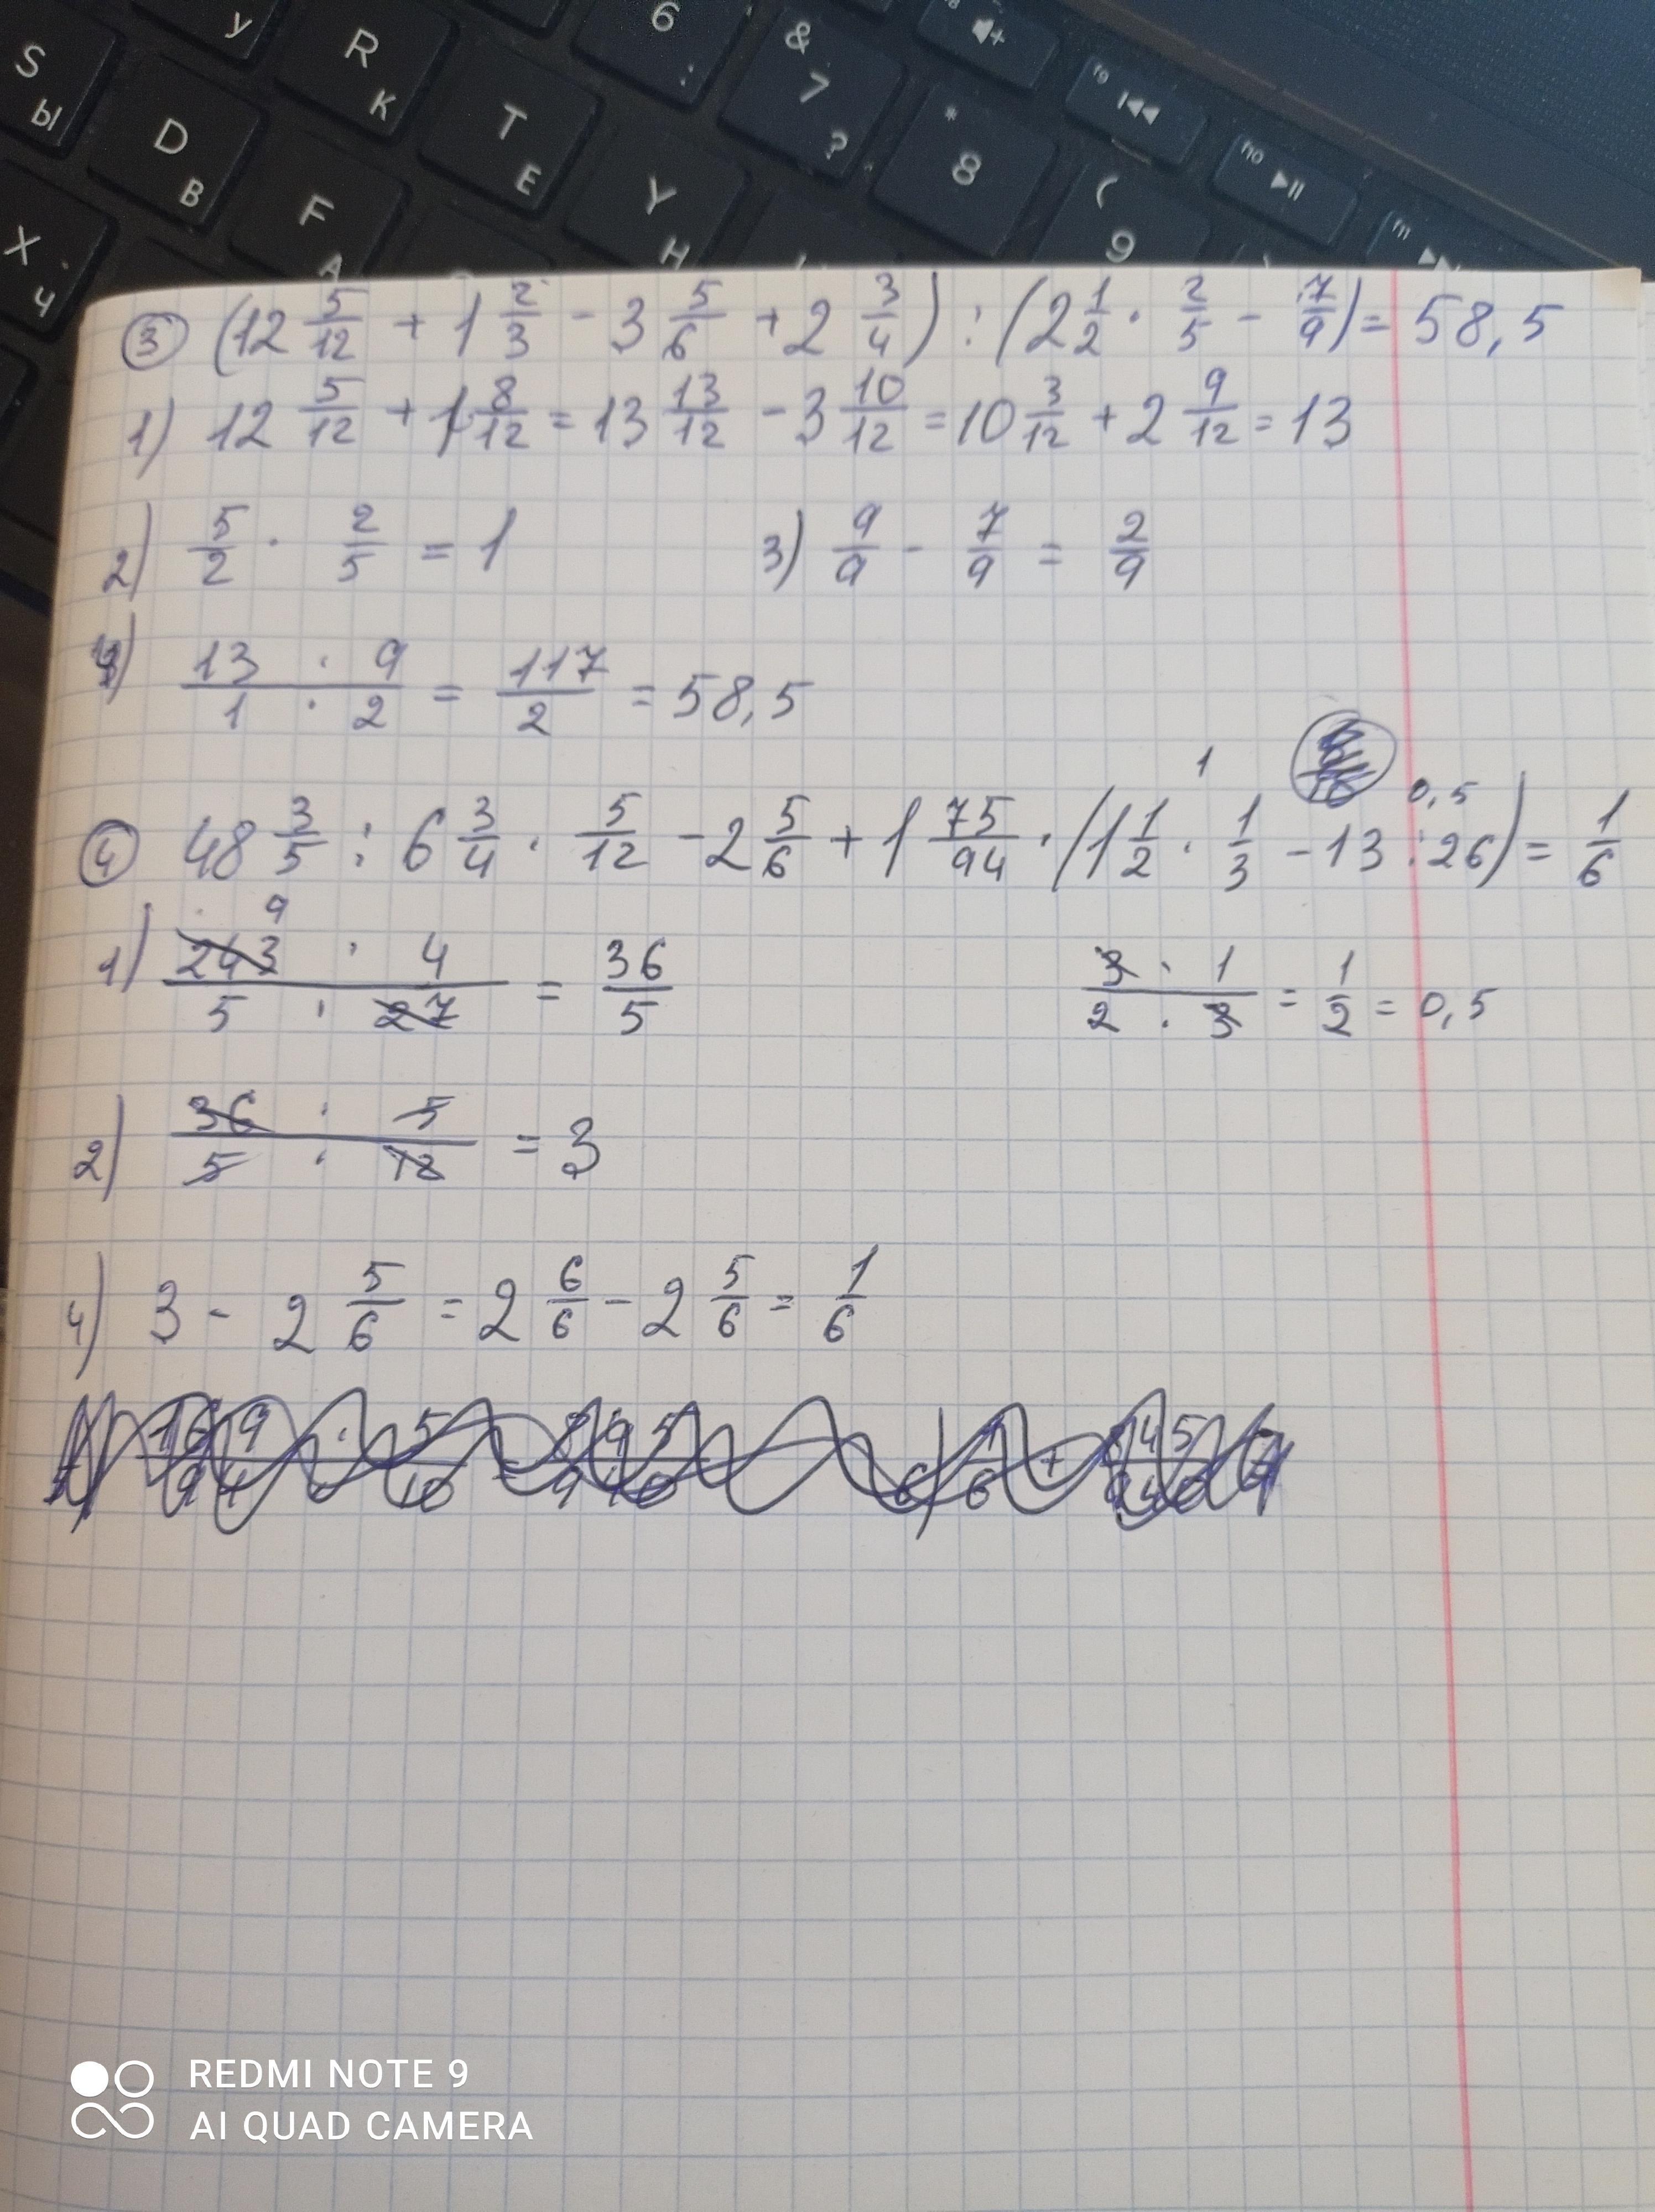 6 :
& 7 ?
* 8
( 9
S Ы
У
R К
D В
T Е
F А
Y Н
X Ч
f9
f10
f11
③ (12 5/12 + 1 2/3 - 3 5/6 + 2 3/4) : (2 1/2 · 2/5 - 7/9) = 58,5
1) 12 5/12 + 1 8/12 = 13 13/12 - 3 10/12 = 10 3/12 + 2 9/12 = 13
2) 5/2 · 2/5 = 1 3) 9/9 - 7/9 = 2/9
13 · 9 / 1 · 2 = 117/2 = 58,5
1 0,5
④ 48 3/5 : 6 3/4 · 5/12 - 2 5/6 + 1 75/94 · (1 1/2 · 1/3 - 13 : 26) = 1/6
9
1) 243 · 4 / 5 · 27 = 36/5 3 · 1 / 2 · 3 = 1/2 = 0,5
2) 36 · 5 / 5 · 12 = 3
4) 3 - 2 5/6 = 2 6/6 - 2 5/6 = 1/6
REDMI NOTE 9
AI QUAD CAMERA